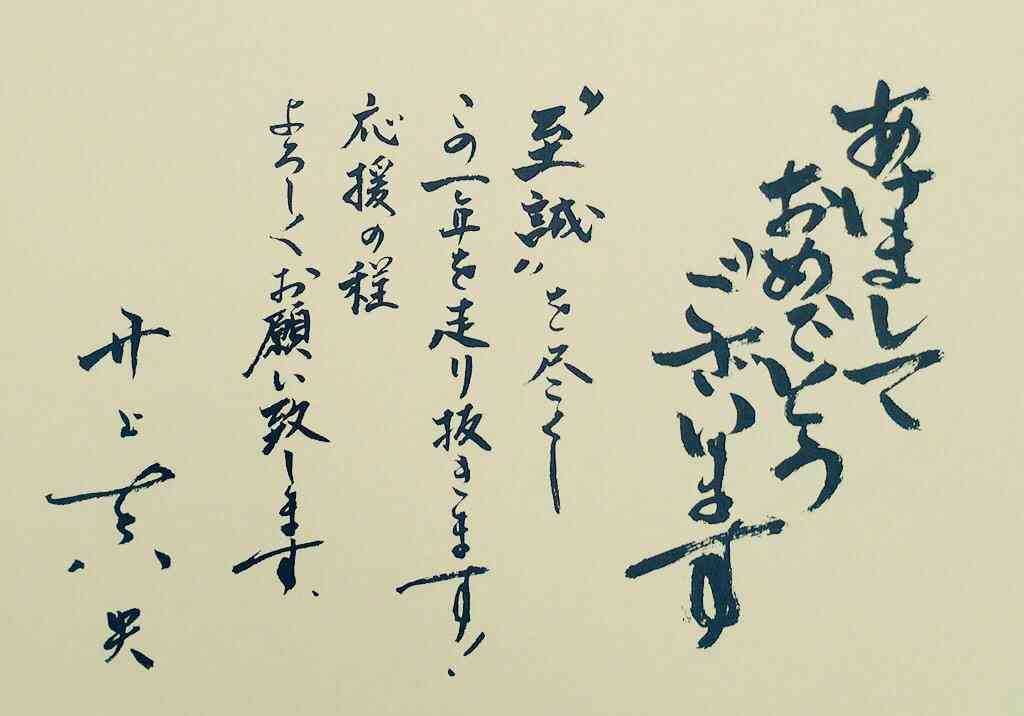 あけまして
おめでとう
ございます
“至誠”を尽くし
この一年を走り抜きます！
応援の程
よろしくお願い致します。
井上真央